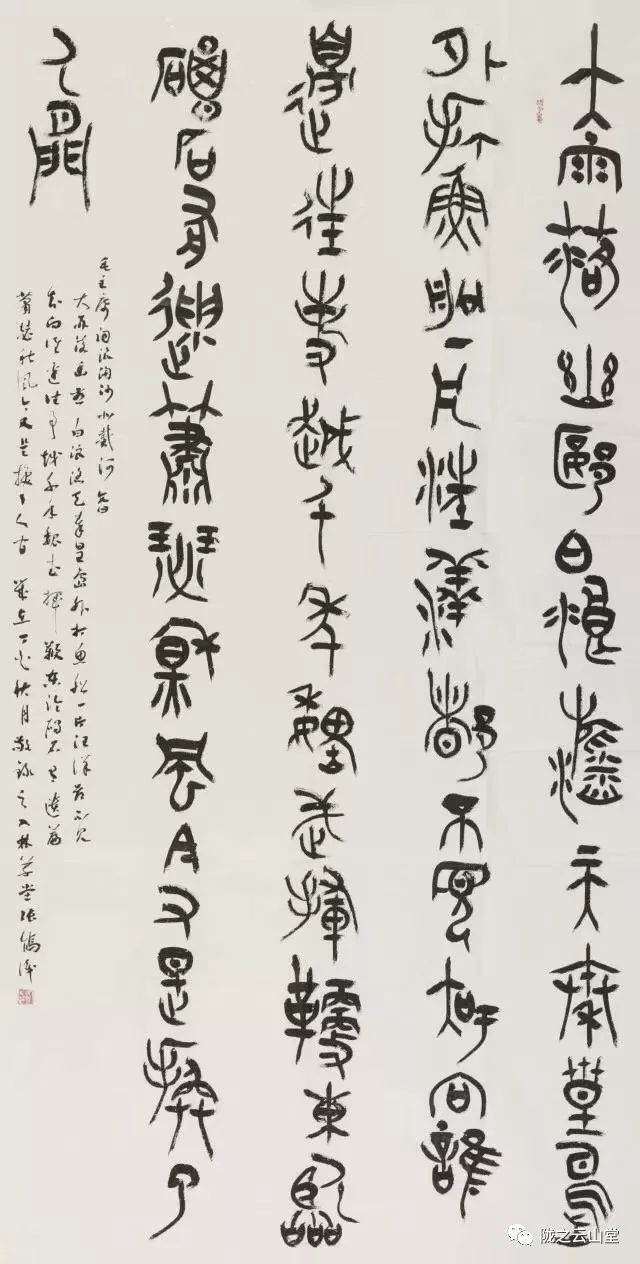 大雨落幽燕白浪滔天秦皇島
外打魚船一片汪洋都不見知向誰
邊往事越千年魏武揮鞭東臨
碣石有遺蕭瑟秋風今又是換了
人間
毛主席詞浪淘沙北戴河
大雨落幽燕白浪滔天秦皇島外打魚船一片汪洋都不見
知向誰邊往事越千年魏武揮鞭東臨碣石有遺篇
蕭瑟秋風今又是換了人間 歲在丁酉秋月敬錄之
陇之云山堂